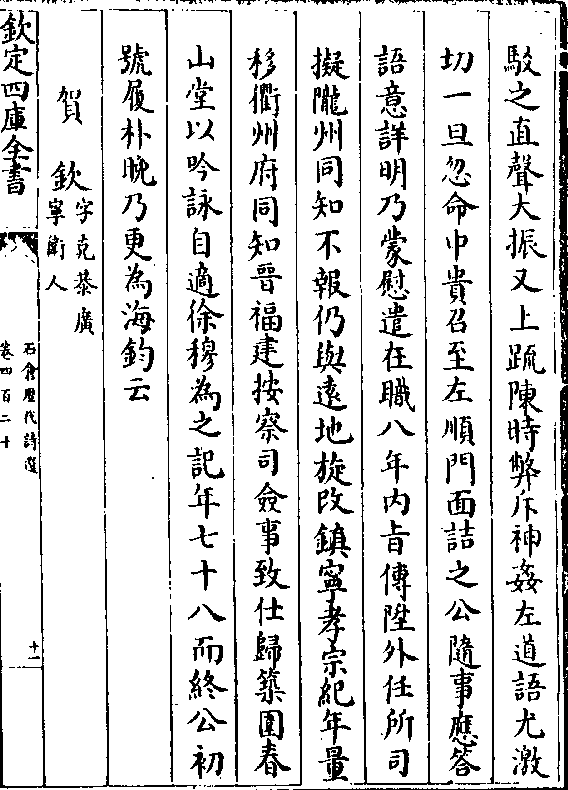 駁之直聲大振又上䟽陳時弊斥神姦左道語尤激
切一旦忽命中貴召至左順門面詰之公隨事應答
語意詳明乃蒙慰遣在職八年内旨傳陞外任所司
擬隴州同知不報仍與遠地旋改鎮寧孝宗紀年量
移衢州府同知晉福建按察司僉事致仕歸築圍春
山堂以吟詠自適徐穆為之記年七十八而終公初
號履朴晚乃更為海釣云
賀欽字克恭廣
寧衛人
欽定四庫全書
石倉歷代詩選
卷四百二十
十一